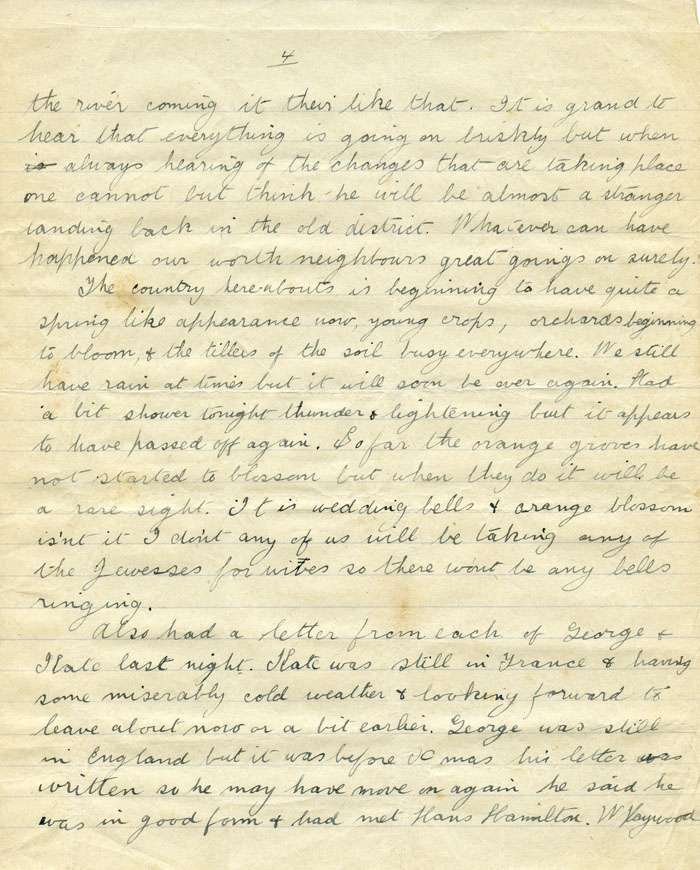 4
the river coming it their like that. It is grand to
hear that everything is going on briskly but when
is always hearing of the changes that are taking place
one cannot but think he will be almost a stranger
landing back in the old district. Whatever can have
happened our worth neighbours great goings on surely.
The country here-abouts is beginning to have quite a
spring like appearance now, young crops, orchards beginning
to bloom, & the tillers of the soil busy everywhere. We still
have rain at times but it will soon be over again. Had
a bit shower tonight thunder & lightening but it appears
to have passed off again. So far the orange groves have
not started to blossom but when they do it will be
a rare sight. It is wedding bells & orange blossom
isn't it I don't any of us will be taking any of
the Jewesses for wives so there wont be any bells
ringing.
Also had a letter from each of George &
Kate last night. Kate was still in France & having
some miserably cold weather & looking forward to
leave about now or a bit earlier. George was still
in England but it was before Xmas his letter was
written so he may have move on again he said he
was in good form & had met Hans Hamilton. W Haywood